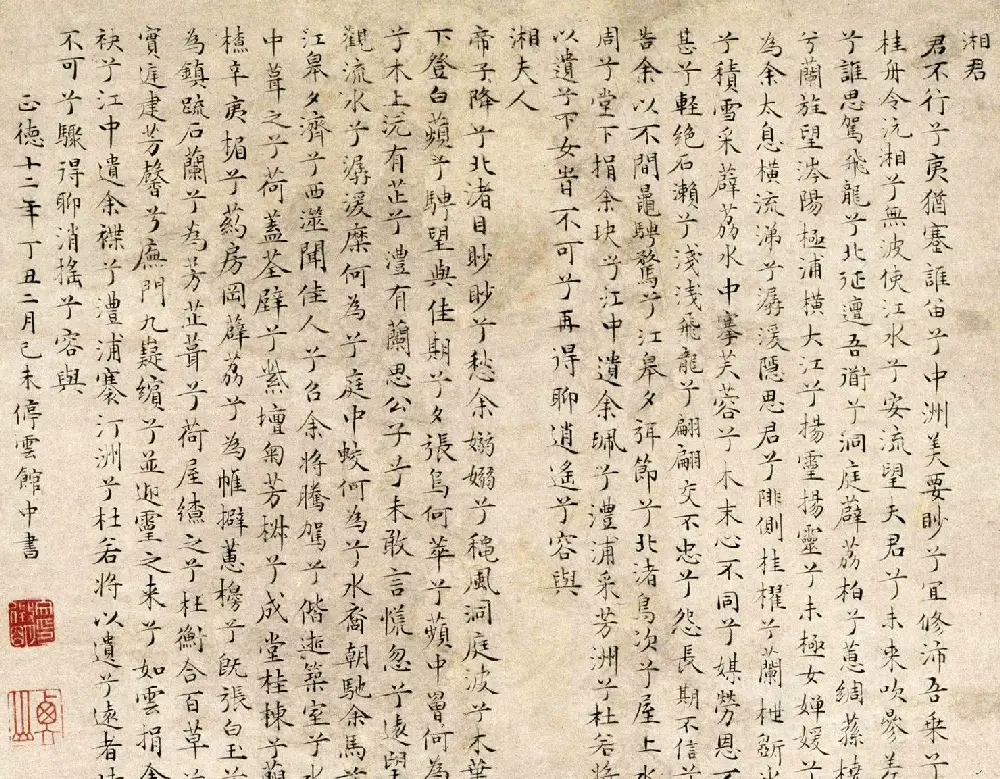 湘君
君不行兮夷猶蹇誰留兮中洲美要眇兮宜修沛吾乘兮
桂舟令沅湘兮無波使江水兮安流望夫君兮未来吹參差
兮誰思駕飛龍兮北征邅吾道兮洞庭薜荔柏兮蕙綢蓀橈
兮蘭旌望涔陽極浦橫大江兮揚靈揚靈兮未極女嬋媛兮
為余太息橫流涕兮潺湲隱思君兮陫側桂櫂兮蘭枻斵冰
兮積雪采薜荔水中搴芙蓉兮木末心不同兮媒勞恩不
甚兮輕絕石瀨兮淺淺飛龍兮翩翩交不忠兮怨長期不信兮
告余以不間鼂騁騖兮江皋夕弭節兮北渚鳥次兮屋上水
周兮堂下捐余玦兮江中遺余珮兮澧浦采芳洲兮杜若將
以遺兮下女旹不可兮再得聊逍遥兮容與
湘夫人
帝子降兮北渚目眇眇兮愁余嫋嫋兮秋風洞庭波兮木葉
下登白蘋兮騁望與佳期兮夕張鳥何萃兮蘋中罾何為
兮木上沅有芷兮澧有蘭思公子兮未敢言慌忽兮遠望
觀流水兮潺湲麋何為兮庭中蛟何為兮水裔朝馳余馬兮
江皋夕濟兮西澨聞佳人兮召余將騰駕兮偕逝築室兮水
中葺之兮荷蓋荃壁兮紫壇匊芳椒兮成堂桂棟兮蘭
橑辛夷楣兮葯房罔薜荔兮為帷擗蕙櫋兮既張白玉兮
為鎮疏石蘭兮為芳芷葺兮荷屋繚之兮杜衡合百草兮
實庭建芳馨兮廡門九嶷繽兮並迎靈之来兮如雲捐余
袂兮江中遺余褋兮澧浦搴汀洲兮杜若將以遺兮遠者時
不可兮驟得聊消搖兮容與
正德十二年丁丑二月己未停雲館中書